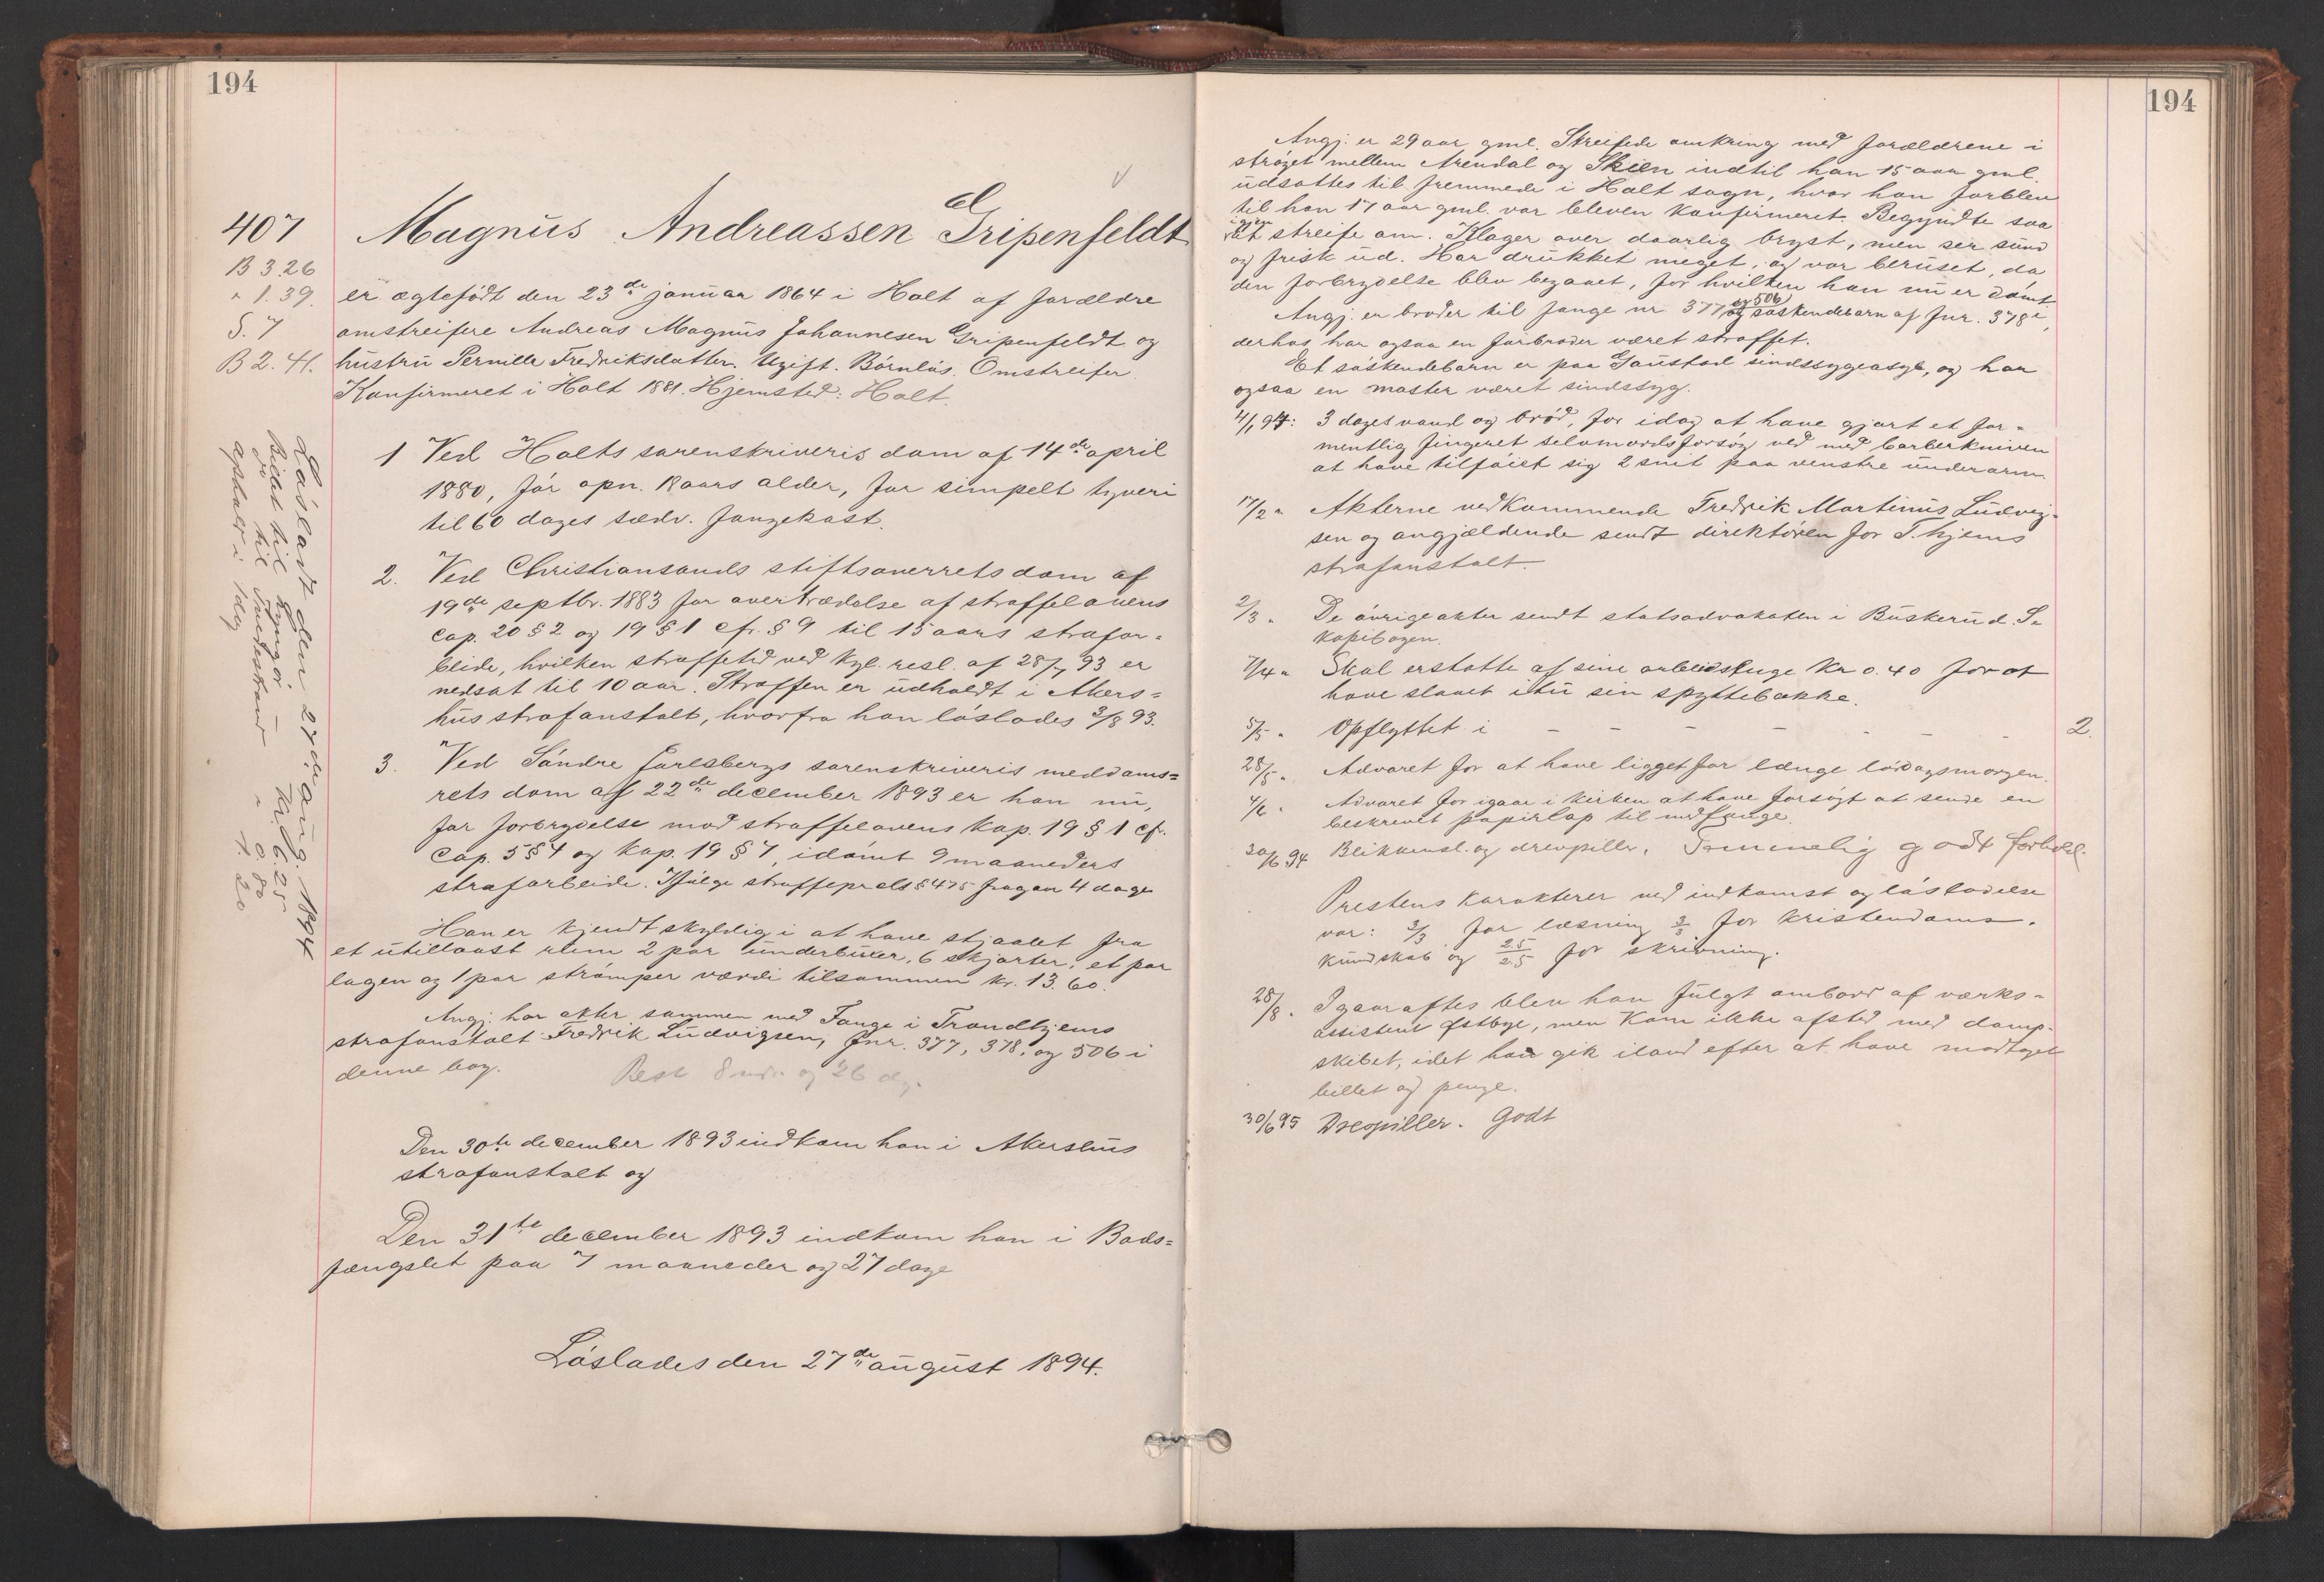 194
407
Magnus Andreassen Gripenfeldt
B 3.26
" 1.39.
S. 7
B 2.41.
er ægtefødt den 23de januar 1864 i Holt af forældre
omstreifere Andreas Magnus Johannesen Gripenfeldt og
hustru Pernille Fredriksdatter. Ugift. Börnlös. Omstreifer.
Konfirmeret i Holt 1881. Hjemsted: Holt.
1 Ved Holts sorenskriveris dom af 14de april
1880, før opn. 18 aars alder, for simpelt tyveri
til 60 dages sædv. fangekost.
2. Ved Christiansands stiftsoverrets dom af
19de septbr. 1883 for overtrædelse af straffelovens
Cap. 20 § 2 og 19 § 1 cfr. § 9 til 15 aars strafar=
beide, hvilken straffetid ved kgl. resl. af 28/7 93 er
nedsat til 10 aar. Straffen er udholdt i Akers=
hus strafanstalt, hvorfra han løslades 3/8 93.
3. Ved Søndre Jarlsbergs sorenskriveris meddoms=
rets dom af 22de december 1893 er han nu,
for forbrydelse mod straffelovens kap. 19 § 1 cfr.
Cap. 5 § 4 og kap. 19 § 7, idømt 9 maaneders
strafarbeide. Ifølge straffeprcls § 475 fragaa 4 dage
Han er kjendt skyldig i at have stjaalet fra
et utillaast rum 2 par underbuxer, 6 skjorter, et par
lagen og 1 par strømper værdi tilsammen kr. 13.60.
Angj. har akter sammen med Fange i Trondhjems
strafanstalt Fredrik Ludvigsen, fnr. 377, 378, og 506 i
denne bog.
Rest 8 mdr. og 26 dg.
Den 30te december 1893 indkom han i Akershus
strafanstalt og
Den 31te december 1893 indkom han i Bods=
fængslet paa 7 maaneder og 27 dage
Løslades den 27de august 1894.
Løsladt den 27de aug. 1894
Billet til Lyngør - Kr. 6.25
Do til Tvedestrand " 0.80
afskaff i idag 7.20
194
Angj. er 29 aar gml. Streifede omkring med forældrene i
strøget mellem Arendal og Skien indtil han 15 aar gml.
udsattes til fremmede i Holt sogn, hvor han forblev
til han 17 aar gml. var bleven konfirmeret. Begyndte saa
igjen
at streife om. Klager over daarlig bryst, men ser sund
og frisk ud. Har drukket meget, og var beruset, da
den forbrydelse blev begaaet, for hvilken han nu er dømt
Angj. er broder til fange nr 377 og 506 og søskendebarn af Fnr. 378,
derhos har ogsaa en farbroder været straffet.
Et søskendebarn er paa Gaustad sindssygeasyl, og har
ogsaa en moster været sindssyg.
4/1 94: 3 dages vand og brød, for idag at have gjort et for=
mentlig fingeret selvmordsforsøg ved med barberkniven
at have tilføiet sig 2 snit paa venstre underarm.
17/2 " Akterne vedkommende Fredrik Martinus Ludvig=
sen og angjældende sendt direktøren for T.hjems
strafanstalt.
2/3 " De øvrige akter sendt statsadvokaten i Buskerud. Se
kopibogen.
7/4 " Skal erstatte af sine arbeidspenge Kr 0.40 for at
have slaaet itu sin spyttebakke.
5/5 " Opflyttet i - - - - - - - 2.
28/5 " Advaret for at have ligget for længe lørdagsmorgen.
4/6 " Advaret for igaar i kirken at have forsøgt at sende en
beskrevet papirlap til medfange.
30/6 94 Blikkensl. og drevpiller. Temmelig godt forhold.
Prestens karakterer ved indkomst og løsladelse
var: 3/3 for læsning 3/3 for kristendoms=
kundskab og 2.5/2.5 for skrivning.
28/8 " Igaaraftes blev han fulgt ombord af værks=
assistent Østbye, men kom ikke afsted med damp=
skibet, idet han gik iland efter at have modtaget
billet og penge.
30/6 95 Drevpiller. Godt